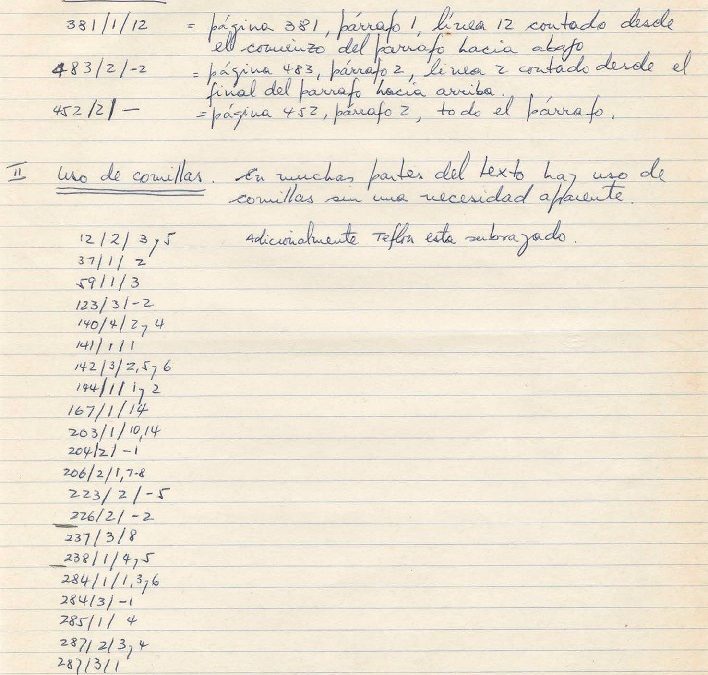 381/1/12 = página 381, párrafo 1, línea 12 contado desde
el comienzo del párrafo hacia abajo
483/2/-2 = página 483, párrafo 2, línea 2 contado desde el
final del parrafo hacia arriba.
452/2/— = página 452, párrafo 2, todo el párrafo.
II Uso de comillas. En muchas partes del texto hay uso de
comillas sin una necesidad aparente.
12/2/3 y 5 Adicionalmente Teflon esta subrayado.
37/1/2
59/1/3
123/3/-2
140/4/2 y 4
141/1/1
142/3/2,5 y 6
144/1/1 y 2
167/1/14
203/1/10,14
204/2/-1
206/2/1,7-8
223/2/-5
226/2/-2
237/3/8
238/1/4 y 5
284/1/1,3 y 6
284/3/-1
285/1/4
287/2/3 y 4
287/3/1